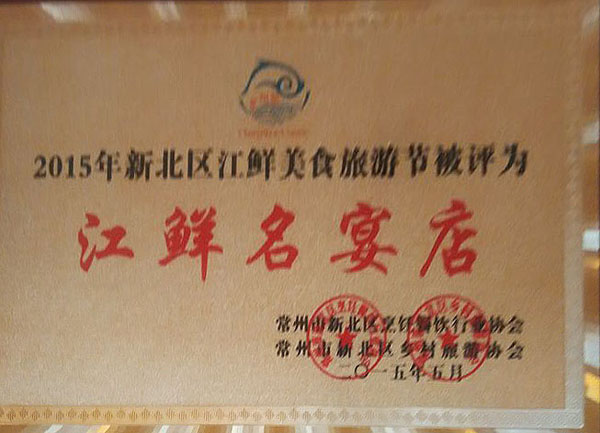 2015年新北区江鲜美食旅游节被评为
江鲜名宴店
常州市新北区烹饪餐饮行业协会
常州市新北区乡村旅游协会
二〇一五年五月